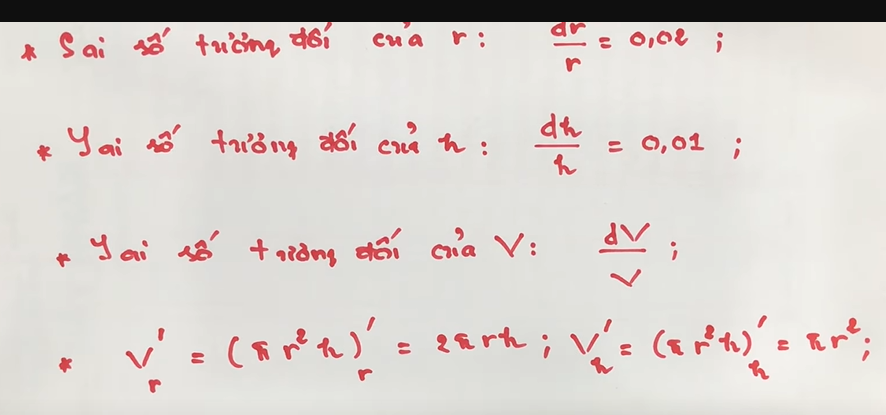 * Sai số tương đối của r: dr/r = 0,02 ;
* Sai số tương đối của h: dh/h = 0,01 ;
* Sai số tương đối của V: dV/V ;
* V'_r = (πr²h)'_r = 2πrh ; V'_h = (πr²h)'_h = πr² ;